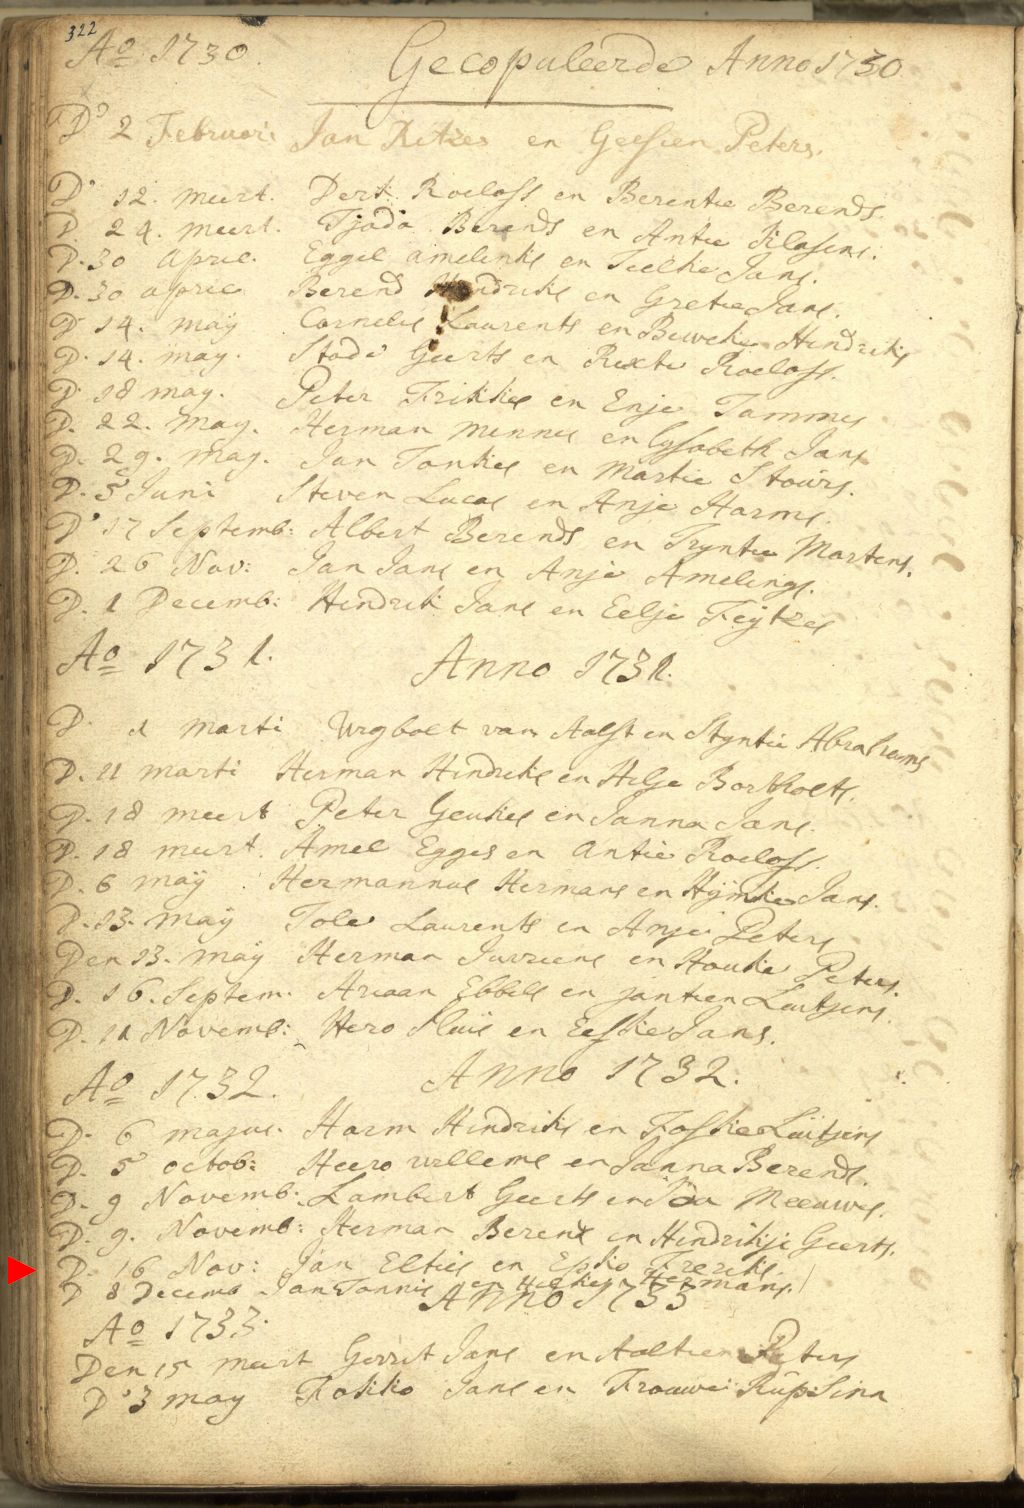 322
Ao 1730. Gecopuleerde Anno 1730
Do 2 Februari Jan Ritzes en Geesien Peters.
D. 12. meert. Derk Roelofs en Berentie Berends.
D. 24. meert. Tjado Berends en Antie Klasens.
D. 30 april. Eggel amelinks en Teelke Jans.
D. 30 april Berend Hendriks en Gretie Jans.
D. 14. maÿ Cornelis Laurents en Beweke Hendriks
D. 14. may. Stado Geerts en Rixte Roelofs.
D. 18 may. Peter Frikkes en Enje Tammes
D. 22. may. Herman mennes en Lysabeth Jans
D. 29. may. Jan Jankes en Martie Stours.
D. 5 Juni Steven Lucas en Anje Harms.
D. 17 Septemb: Albert Berends en Tryntie Martens.
D. 26 Nov: Jan Jans en Anje Amelings.
D. 1 Decemb: Hindrik Jans en Eelje Feÿtzes
Ao 1731. Anno 1731.
D. 1 marti van Aalst en Styntie Abrahams
D. 11 marti Herman Hindriks en Hilje Bortholts.
D. 18 meert Peter Geukes en Janna Jans.
D. 18 meert. Amel Egges en Antie Roelofs.
D. 6 maÿ Hermannus Hermans en Hÿmke Jans.
D. 13. maÿ Tole Laurents en Anje Peters
Den 13. maÿ Herman Jurriens en Houke Peters.
D. 16. Septem. Ariaan Ebbels en jantien Luitjens.
D. 11 Novemb: Hero Sluis en Eeske Jans.
Ao 1732. Anno 1732.
D. 6 majus. Harm Hindriks en Foske Luitjens
D. 5 octob: Heero willems en Janna Berends.
D. 9 Novemb: Lambert Geerts en Meeuwes.
D. 9. Novemb: Herman Berens en Hindrikje Geerts.
D. 16 Nov: Jan Elties en Epko Freriks.
D 8 Decemb Jan Jannis en Hilkijn Hermans.
Anno 1733
Ao 1733.
Den 15 meert Gerrit Jans en Aaltien Peters
D. 3 may Fokko Jans en Frouwe Rupsina